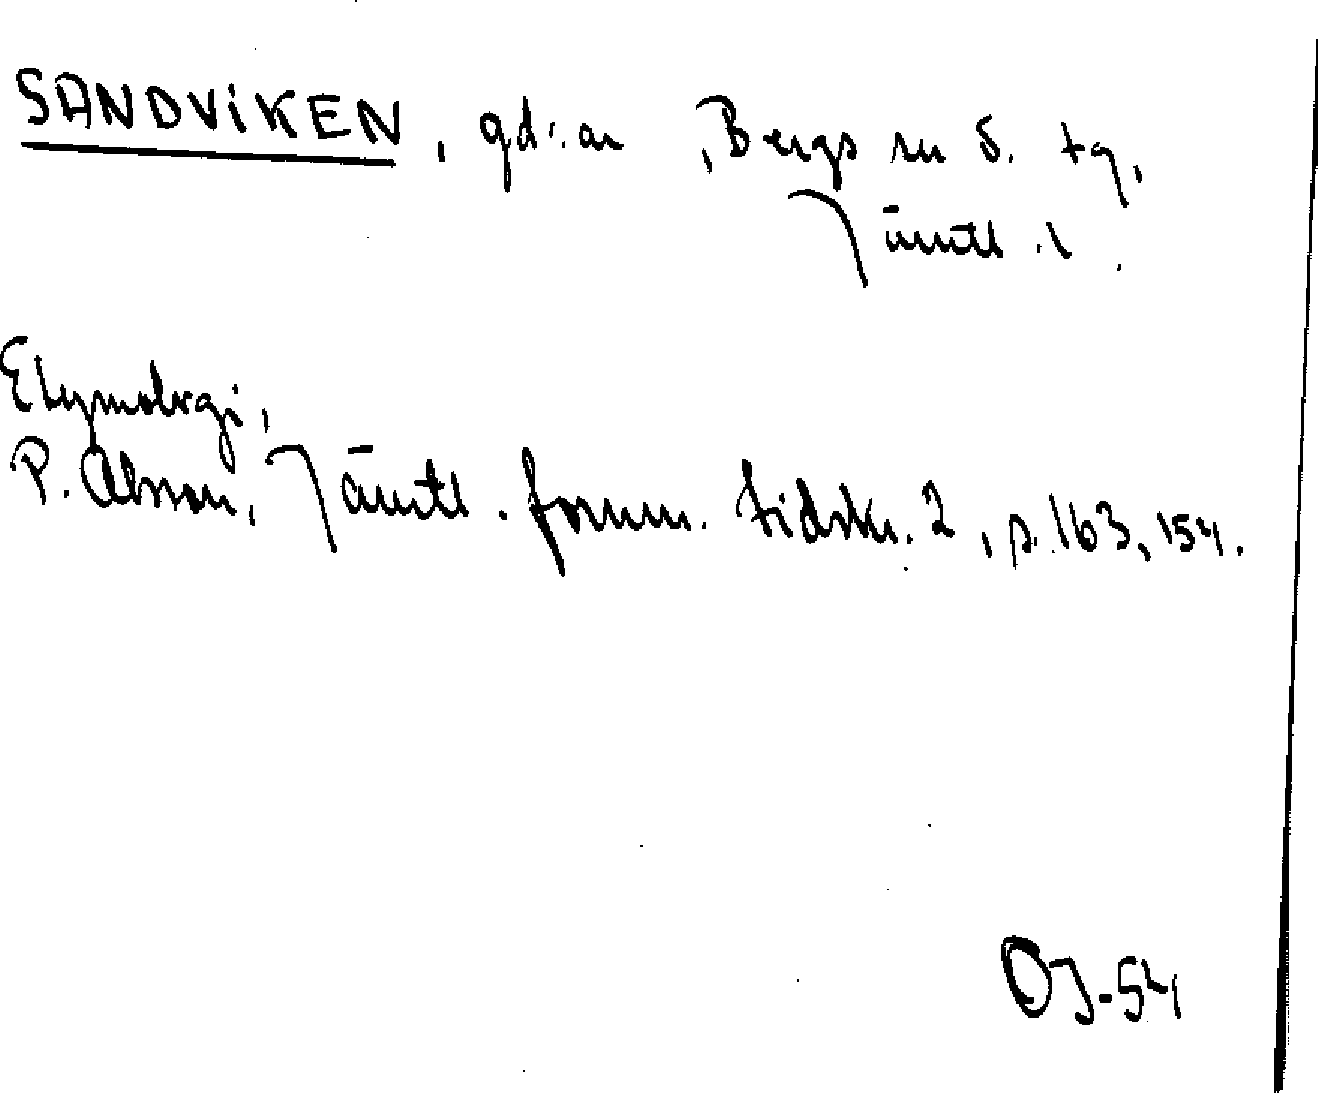 SANDVIKEN, gd:ar, Bergs sn S. tg,
Jämtl. l.
Etymologi,
P. Olsson, Jämtl. fornm. tidskr. 2, s. 163, 154.
OJ-54